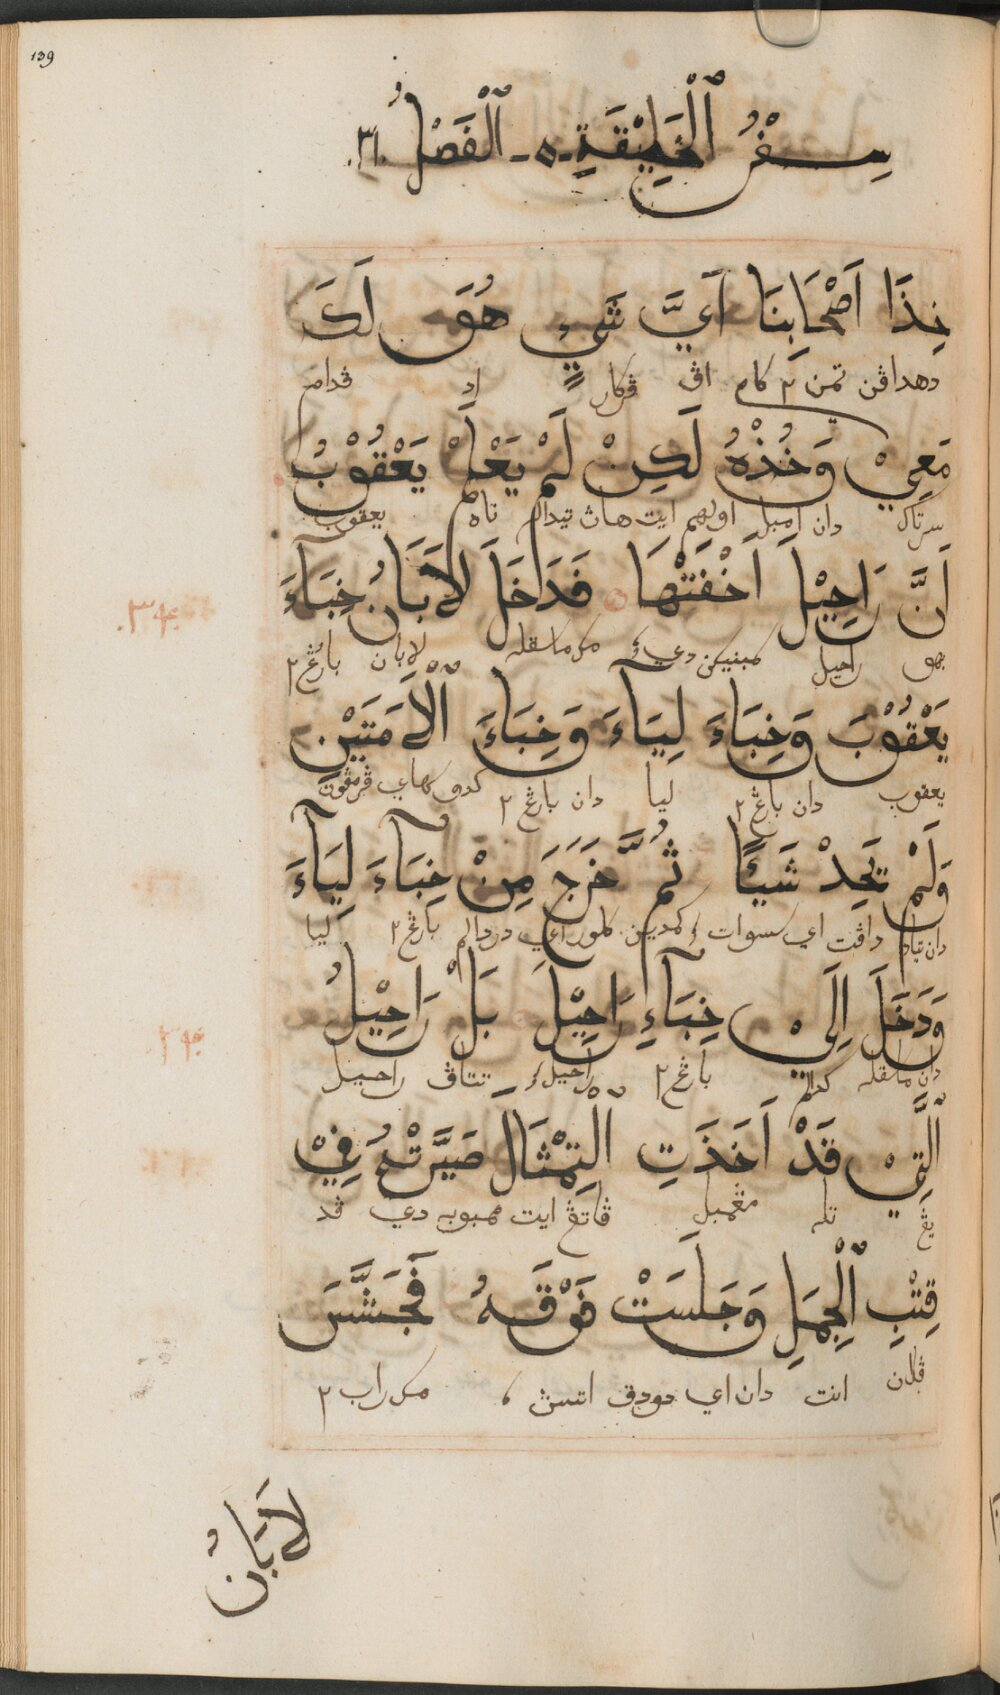 139
سِفْرُ ٱلْخَلِيْقَةِ ـ ه ـ ٱلْفَصْلُ .٣١.
حِذَا اَصْحَابِنَا اَيَّ شَيْءٍ هُوَ لَكَ
دهداڤن تمن ٢ كام اڤ ڤكار اد ڤدام
مَعِيْ وَخُذْهُ لَكِنْ لَمْ يَعْلَمْ يَعْقُوْبُ
سرتاك دان امبل اولهم ايت هاڽ تيدال تاه يعقوب
اَنَّ رَاحِيْلَ اَخْفَتْهَا فَدَخَلَ لَابَانُ خِبَاءَ
.٣٣.
بهو راحيل مك ماسقله لابان بارڠ ٢
يَعْقُوْبَ وَخِبَاءَ لِيَاءَ وَخِبَاءَ ٱلْاَمَتَيْنِ
يعقوب دان بارڠ ٢ ليا دان بارڠ ٢ كدو سهاي ڤرمڤون
وَلَمْ يَجِدْ شَيْئًا ثُمَّ خَرَجَ مِنْ خِبَآءِ لِيَآءَ
دان تياد داڤت اي سسوات كمدين كلوراي دردالم بارڠ ٢ ليا
وَدَخَلَ اِلَيْ خِبَآءِ رَاحِيْلَ بَلْ رَاحِيْلُ
.٣٤.
دان ماسقله كدالم بارڠ ٢ راحيل تتاڤ راحيل
ٱلَّتِيْ قَدْ اَخَذَتِ ٱلتِمْثَالَ صَيَّرَتْهُ فِيْ
يڠ تله مڠمبل ڤاتڠ ايت ممبوبه دي ڤد
قِتْبِ ٱلْجَمَلِ وَجَلَسَتْ فَوْقَهُ فَجَسَّسَ
ڤلان انت دان اي دودق اتسڽ مك راب ٢
لَابَانُ